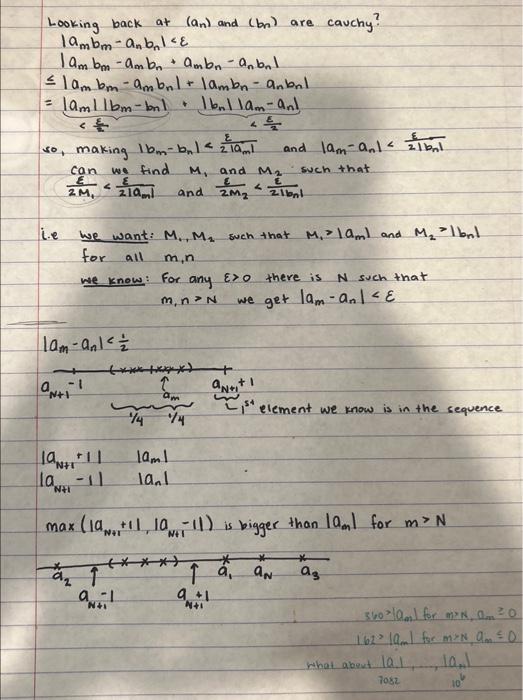 Looking back at (an) and (bn) are cauchy?
|ambm - anbn| < ε
|ambm - ambn + ambn - anbn|
≤ |ambm - ambn| + |ambn - anbn|
= |am||bm - bn| + |bn||am - an|
< ε/2 < ε/2
so, making |bm - bn| < ε/2|am| and |am - an| < ε/2|bn|
can we find M₁ and M₂ such that
ε/2M₁ < ε/2|am| and ε/2M₂ < ε/2|bn|
i.e we want: M₁, M₂ such that M₁ > |am| and M₂ > |bn|
for all m,n
we know: For any ε>0 there is N such that
m,n > N we get |am - an| < ε
|am - an| < 1/2
( x x x x x x x )
aN+1 - 1 am aN+1 + 1
1/4 1/4 1st element we know is in the sequence
|aN+1 + 1| |am|
|aN+1 - 1| |an|
max (|aN+1 + 1|, |aN+1 - 1|) is bigger than |am| for m > N
a2 a1 aN a3
aN+1 - 1 aN+1 + 1
360 > |am| for m>N, am ≥ 0
162 > |am| for m>N, am ≤ 0
what about |a1|, ..., |aN|
7082 10⁶